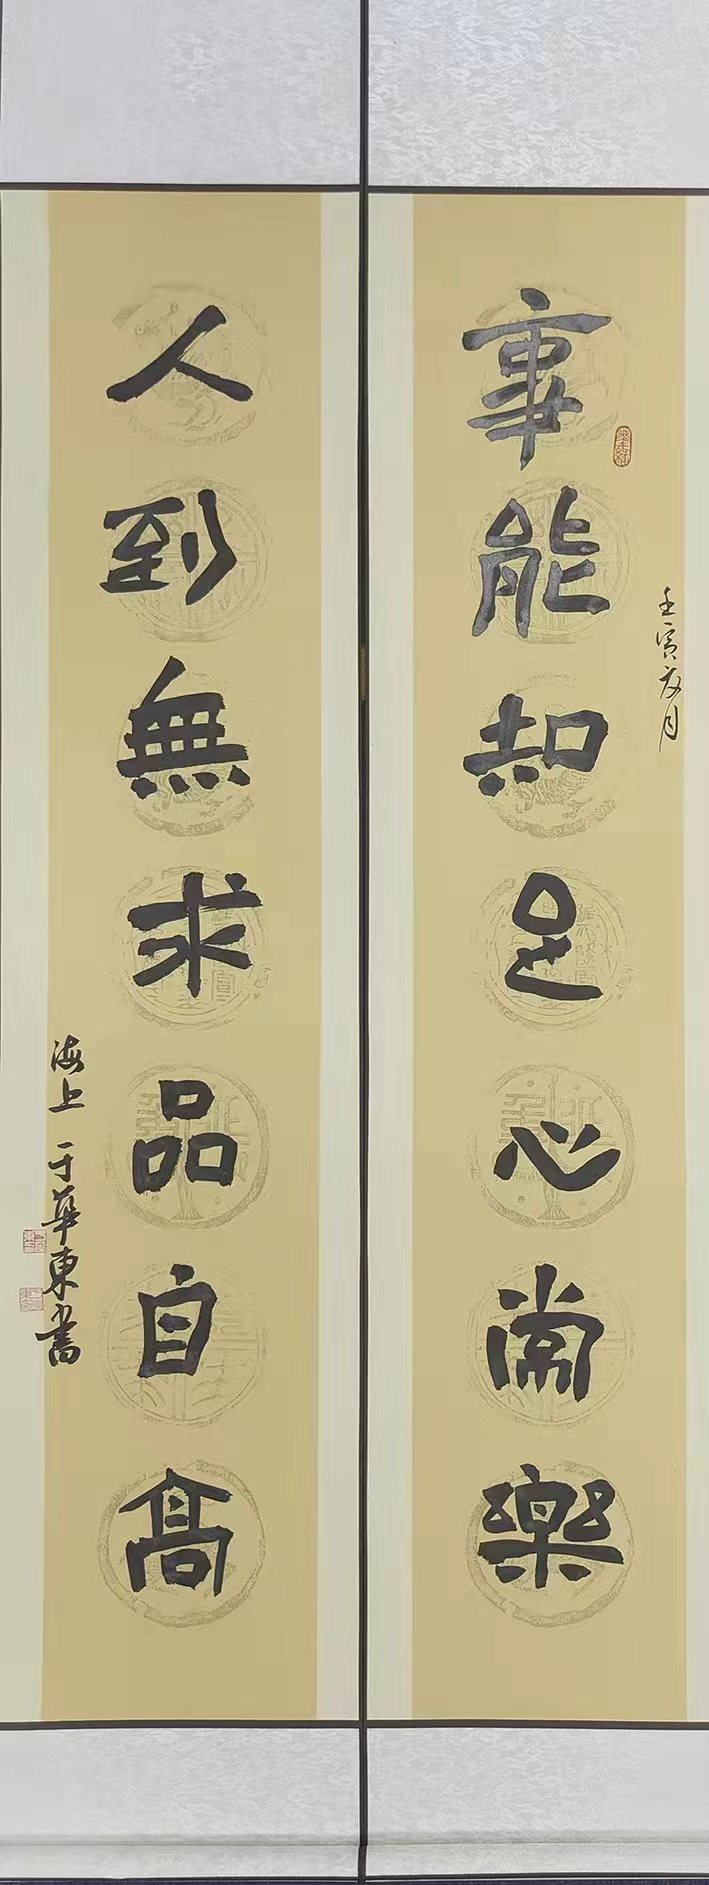 事能知足心常樂
壬寅夏月
人到無求品自高
海上于華東書